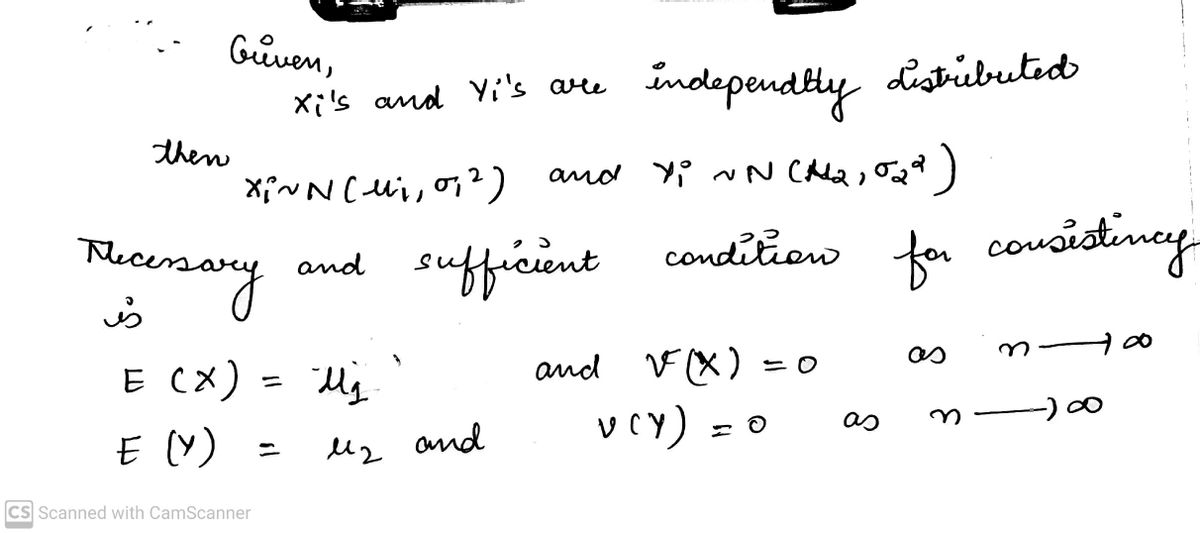 Given,
Xi's and Yi's are independtly distributed
then
Xi ~ N (μi, σ1²) and Yi ~ N (μ2, σ2²)
Necessary and sufficient condition for consistency
is
E (X) = μ1 and V(X) = 0 as n → ∞
E (Y) = μ2 and V(Y) = 0 as n → ∞
CS Scanned with CamScanner